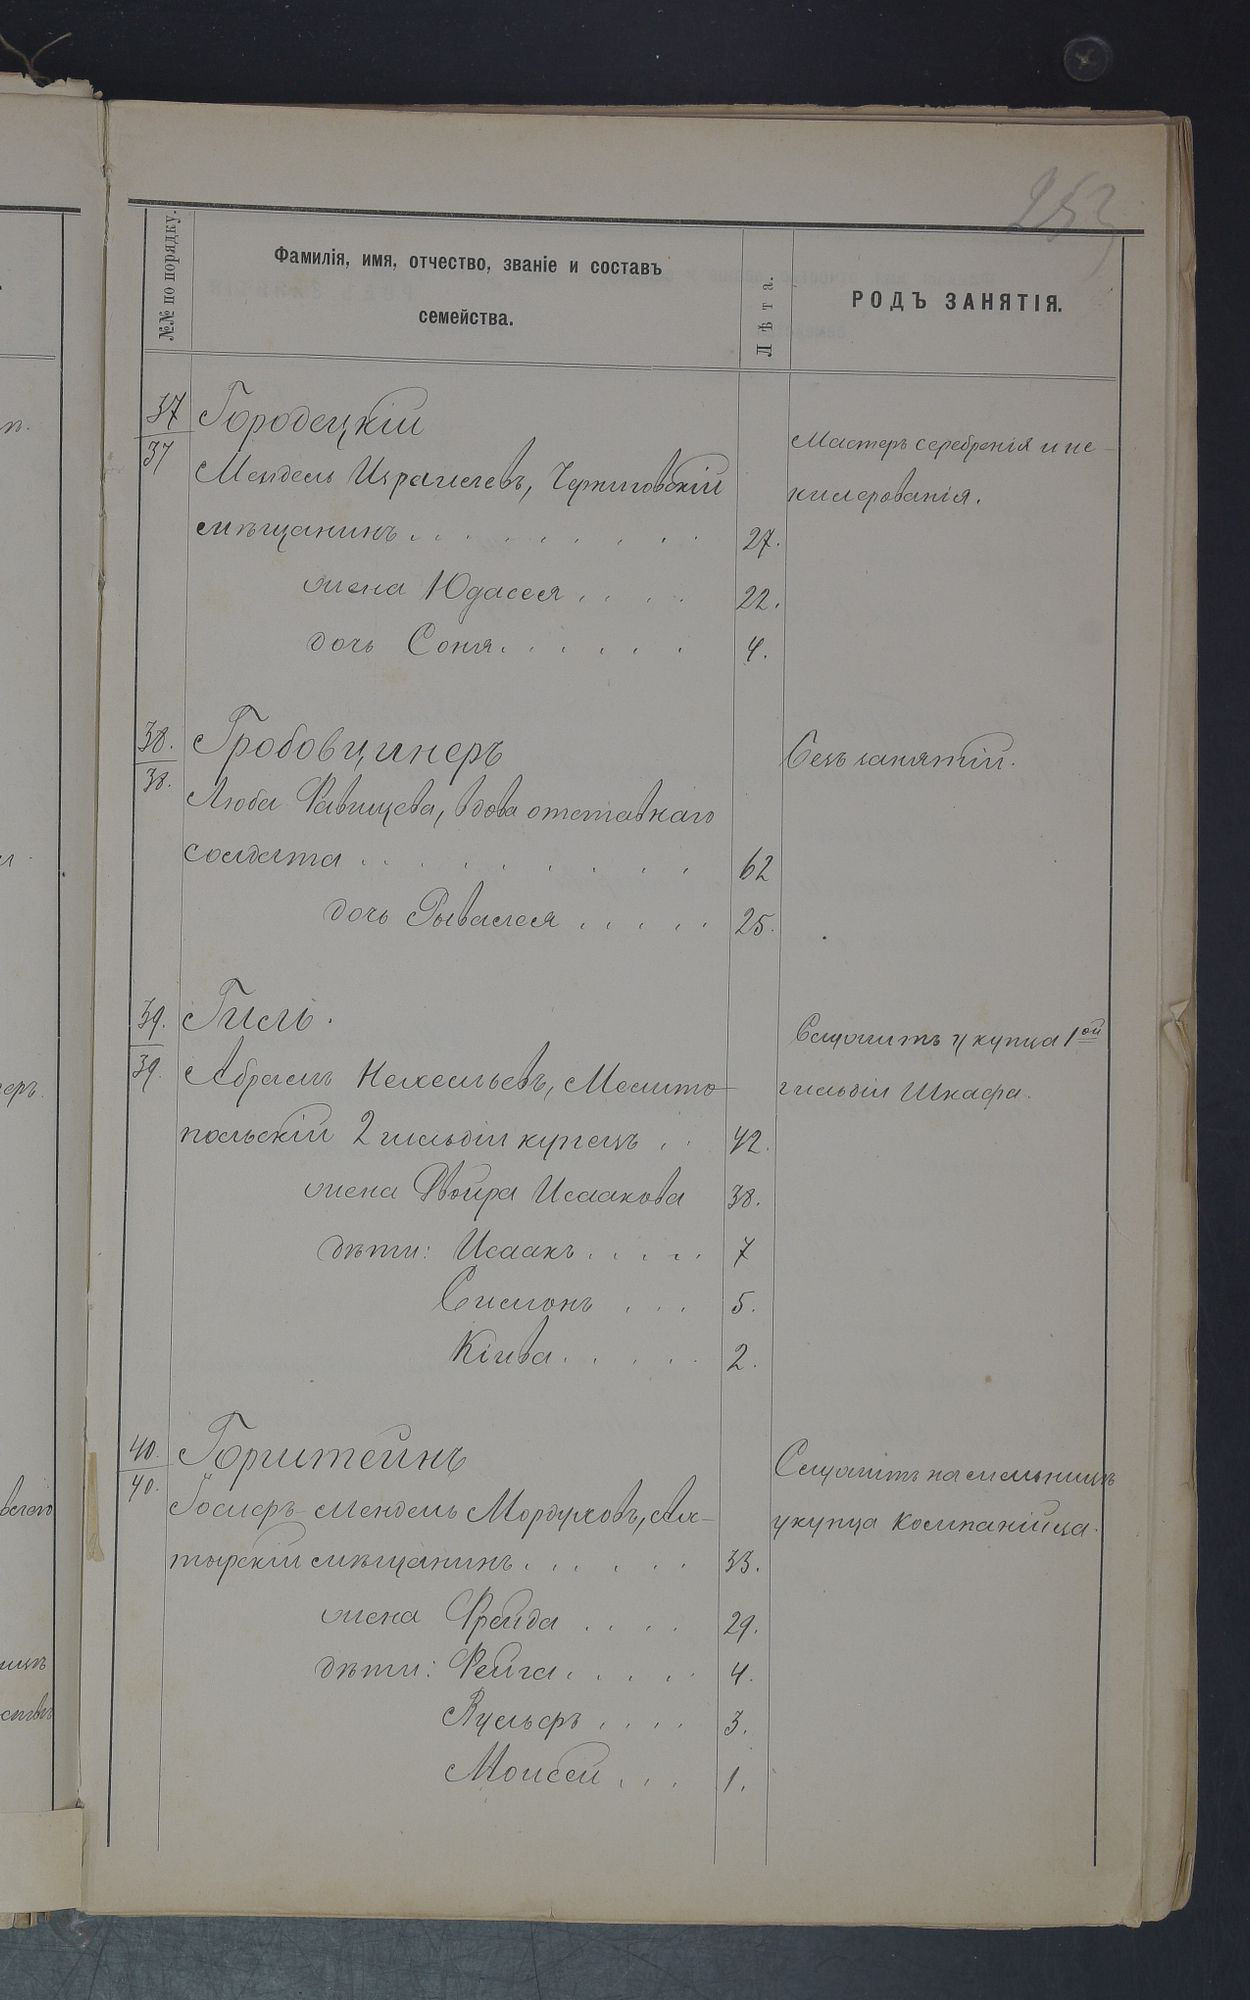 253
№№ по порядку.
Фамилія, имя, отчество, званіе и составъ
семейства.
Лѣта.
РОДЪ ЗАНЯТІЯ.
37 Городецкій
37
Мендель Израилевъ, Черниговскій
мѣщанинъ . . . . . . . . . 27.
жена Юдасся . . . . 22.
дочь Соня . . . . . . 4.
Мастеръ серебренія и не-
килерованія.
38. Гробовщинеръ
38.
Люба Файвишева, вдова отставнаго
солдата . . . . . . . . . 62
дочь Рывася . . . . . 25.
Безъ занятій.
39. Гиль.
39.
Абрамъ Нехемьевъ, Мелито-
польскій 2 гильдіи купецъ . . 42.
жена Двойра Исаакова 38.
дѣти: Исаакъ . . . . . 7
Симонъ . . . 5.
Кіива . . . . . 2.
Служитъ у купца 1ой
гильдіи Шкафа.
40. Горштейнъ
40.
Іосифъ-Мендель Мордуховъ, Ах-
тырскій мѣщанинъ . . . . . . 33.
жена Фрейда . . . . 29.
дѣти: Фейга . . . . . 4.
Вульфъ . . . . 3.
Моисей . . . 1.
Служитъ на мельницѣ
у купца Компанійца.